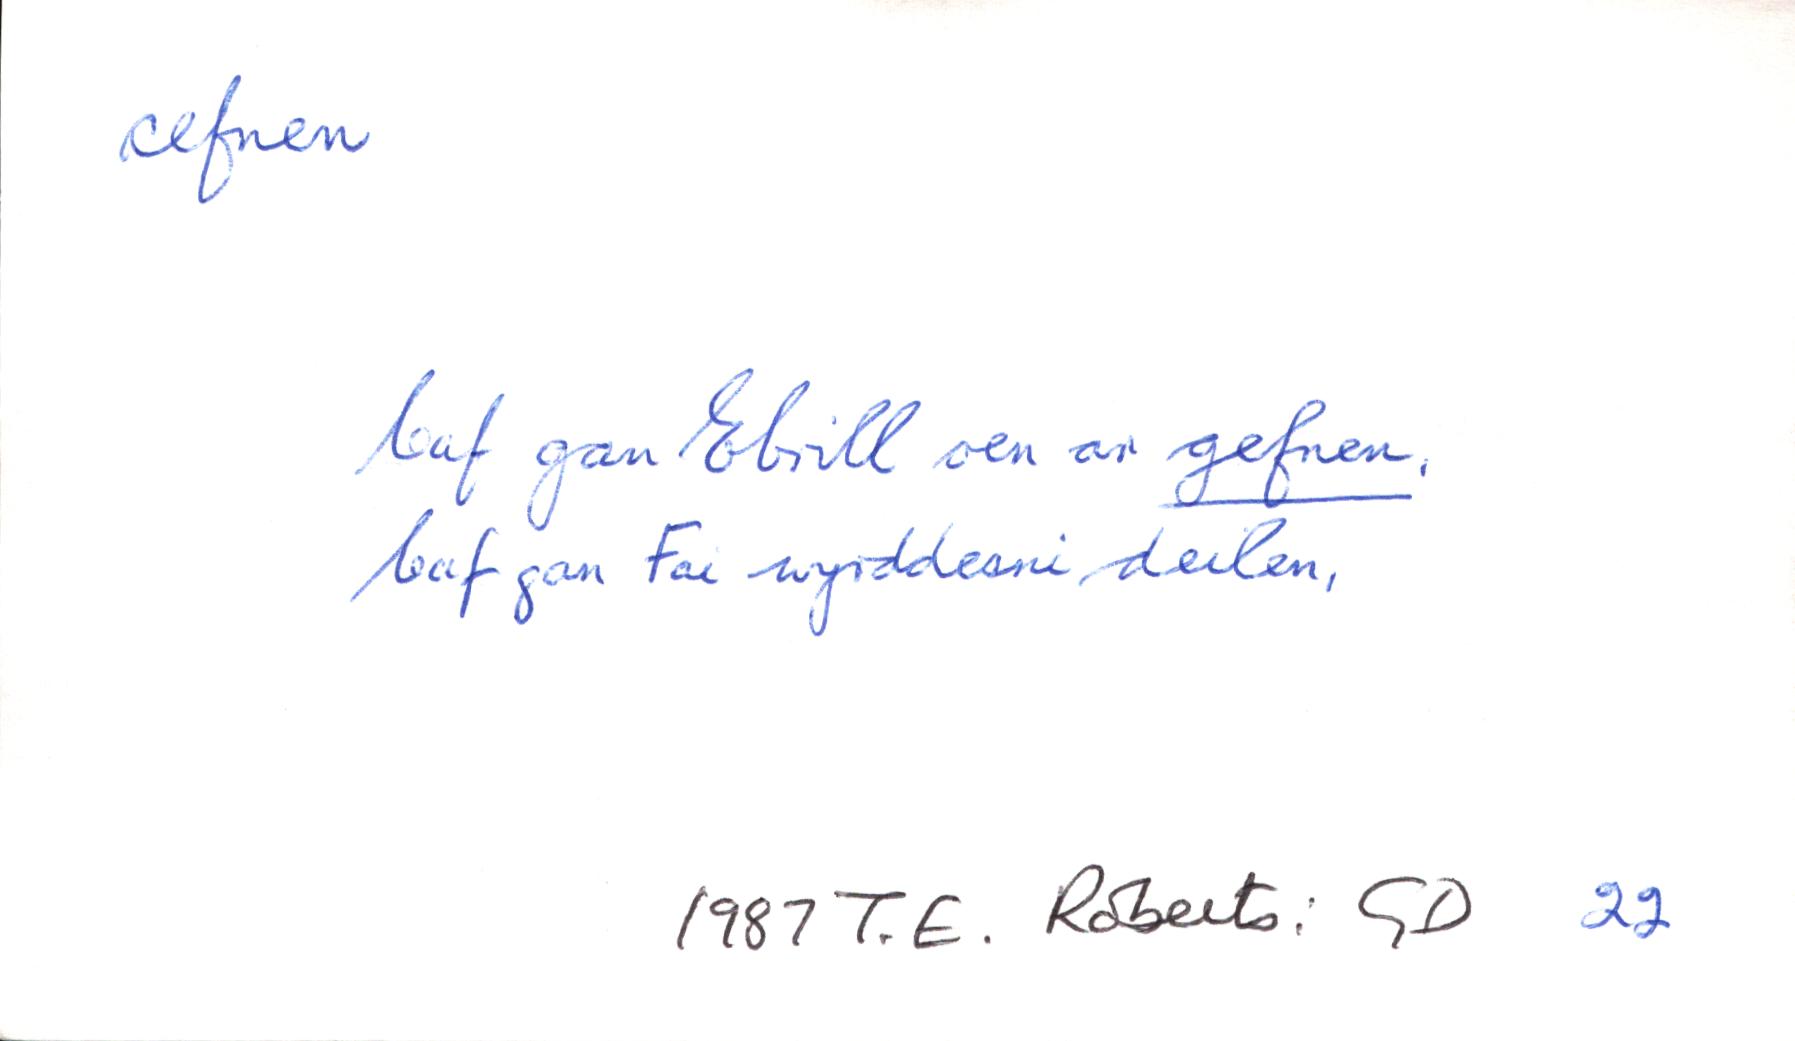 cefnen
Caf gan Ebrill oen ar gefnen,
Caf gan Fai wyrddesni deilen,
1987 T.E. Roberts: GD 22